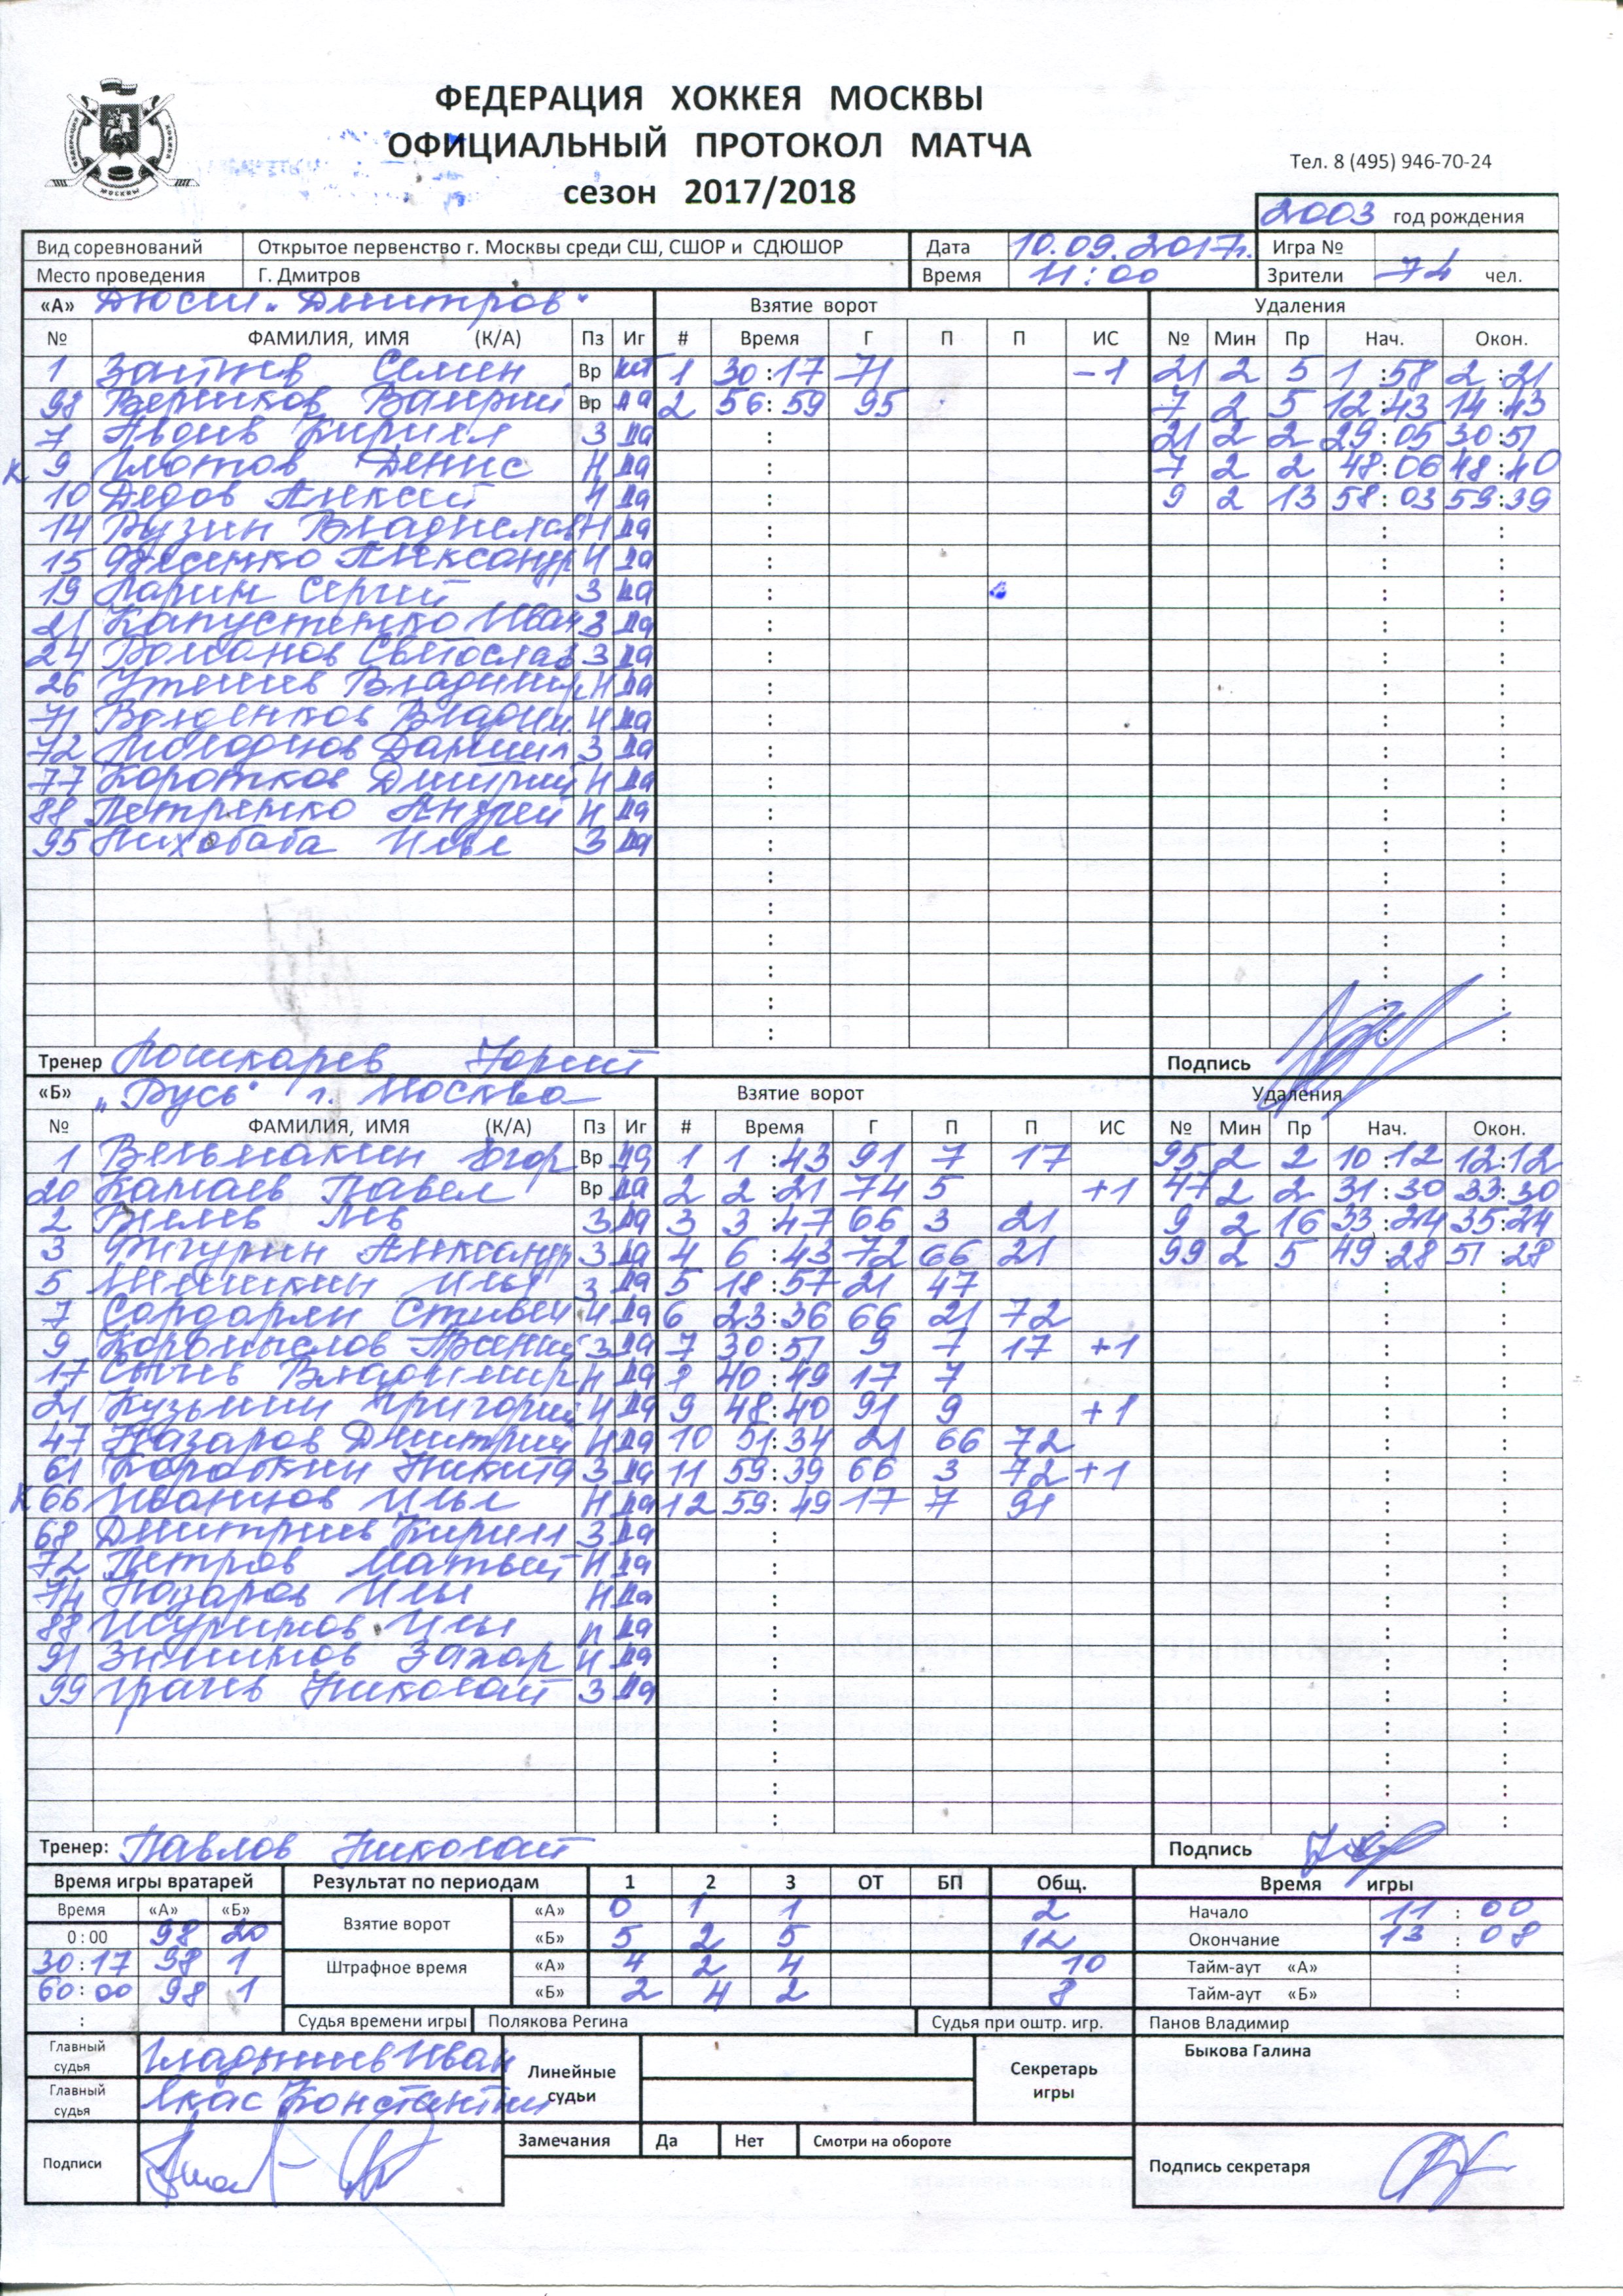 ФЕДЕРАЦИЯ ХОККЕЯ МОСКВЫ
ОФИЦИАЛЬНЫЙ ПРОТОКОЛ МАТЧА
сезон 2017/2018
Тел. 8 (495) 946-70-24
2003 год рождения
Вид соревнований Открытое первенство г. Москвы среди СШ, СШОР и СДЮШОР Дата 10.09.2017г. Игра №
Место проведения Г. Дмитров Время 11:00 Зрители 74 чел.
«А» ДЮСШ „Дмитров" Взятие ворот Удаления
№ ФАМИЛИЯ, ИМЯ (К/А) Пз Иг # Время Г П П ИС № Мин Пр Нач. Окон.
1 Зайцев Семен Вр нет 1 30:17 71 -1 21 2 5 1:58 2:21
98 Валерий Вр да 2 56:59 95 7 2 5 12:43 14:43
7 Кирилл З да 21 2 2 29:05 30:51
К 9 Денис Н да 7 2 2 48:06 48:40
10 Дедов Алексей Н да 9 2 13 58:03 59:39
14 Владислав Н да
15 Александр Н да
19 Ларин Сергей З да
21 Капустенко Иван З да
24 Святослав З да
26 Владимир Н да
71 Н да
72 Даниил З да
77 Коротков Дмитрий Н да
88 Петренко Андрей Н да
95 Лихобаба Илья З да
Тренер Лошкарев Юрий Подпись
«Б» „Русь" г. Москва Взятие ворот Удаления
№ ФАМИЛИЯ, ИМЯ (К/А) Пз Иг # Время Г П П ИС № Мин Пр Нач. Окон.
1 Вельмакин Егор Вр да 1 1:43 91 7 17 95 2 2 10:12 12:12
20 Камаев Павел Вр да 2 2:21 74 5 +1 47 2 2 31:30 33:30
2 Лев З да 3 3:47 66 3 21 9 2 16 33:24 35:24
3 Александр З да 4 6:43 72 66 21 99 2 5 49:28 51:28
5 Илья З да 5 18:57 21 47
7 Сардарян Стивен Н да 6 23:36 66 21 72
9 Коромыслов Арсений З да 7 30:51 9 7 17 +1
17 Сычев Владимир Н да 8 40:49 17 7
21 Кузьмин Григорий Н да 9 48:40 91 9 +1
47 Назаров Дмитрий Н да 10 51:34 21 66 72
61 Никита З да 11 59:39 66 3 72 +1
К 66 Иванцов Илья Н да 12 59:49 17 7 91
68 Дмитриев Кирилл З да
72 Петров Матвей Н да
74 Назаров Илья Н да
88 Илья Н да
91 Захар Н да
99 Грачев Николай З да
Тренер: Павлов Николай Подпись
Время игры вратарей Результат по периодам 1 2 3 ОТ БП Общ. Время игры
Время «А» «Б» Взятие ворот «А» 0 1 1 2 Начало 11:00
0:00 98 20 «Б» 5 2 5 12 Окончание 13:08
30:17 98 1 Штрафное время «А» 4 2 4 10 Тайм-аут «А» :
60:00 98 1 «Б» 2 4 2 8 Тайм-аут «Б» :
: Судья времени игры Полякова Регина Судья при оштр. игр. Панов Владимир
Главный судья Гладышев Иван Линейные судьи Секретарь игры Быкова Галина
Главный судья Якас Константин
Подписи Замечания Да Нет Смотри на обороте Подпись секретаря